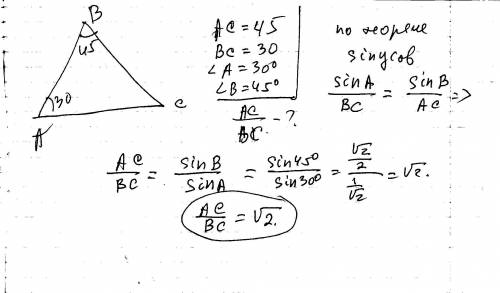 B
45
30
A
C
AC = 45
BC = 30
∠A = 30°
∠B = 45°
AC/BC - ?
по теореме
sinусов
sinA/BC = sinB/AC =>
AC/BC = sinB/sinA = sin45°/sin30° = (√2/2)/(1/√2) = √2.
AC/BC = √2.